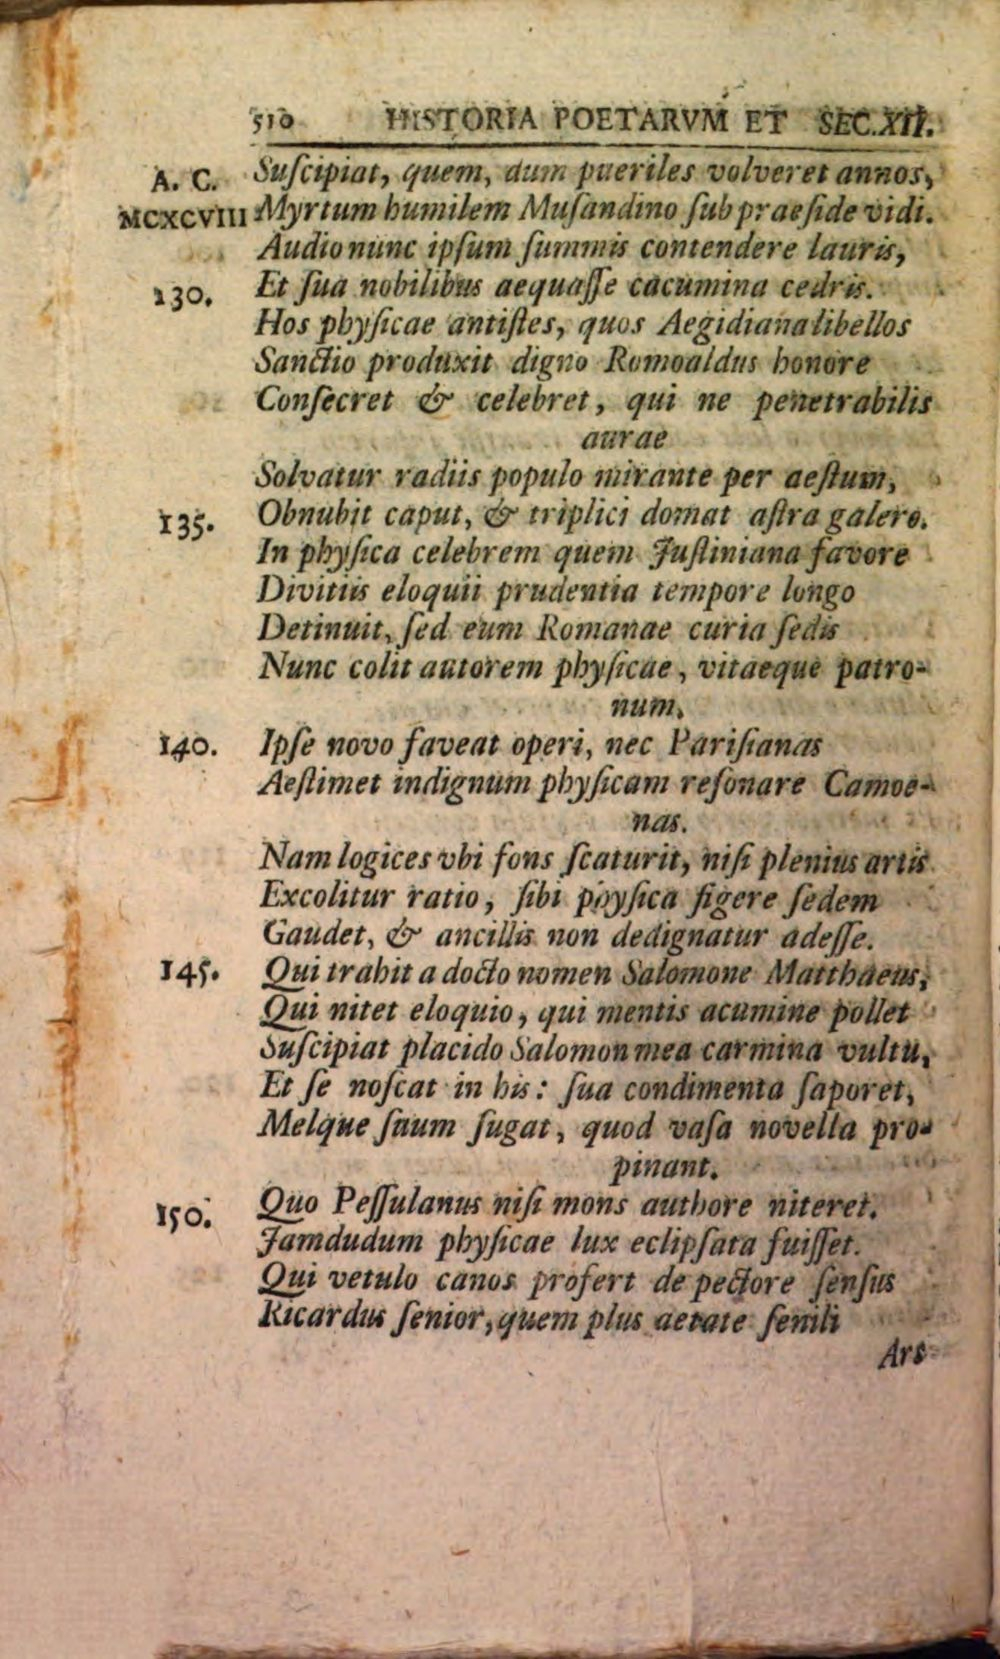 510 HISTORIA POETARVM ET SEC.XII.
A. C. Suſcipiat, quem, dum pueriles volveret annos,
MCXCVIII Myrtum humilem Muſandino ſub praeſide vidi.
Audio nunc ipſum ſummis contendere lauris,
130. Et ſua nobilibus aequaſſe cacumina cedris.
Hos phyſicae antiſtes, quos Aegidiana libellos
Sanctio produxit digno Romoaldus honore
Conſecret & celebret, qui ne penetrabilis
aurae
Solvatur radiis populo mirante per aeſtum,
135. Obnubit caput, & triplici domat aſtra galero.
In phyſica celebrem quem Juſtiniana favore
Divitiis eloquii prudentia tempore longo
Detinuit, ſed eum Romanae curia ſedis
Nunc colit autorem phyſicae, vitaeque patro-
num.
140. Ipſe novo faveat operi, nec Pariſianas
Aeſtimet indignum phyſicam reſonare Camoe-
nas.
Nam logices vbi fons ſcaturit, niſi plenius artis
Excolitur ratio, ſibi phyſica figere ſedem
Gaudet, & ancillis non dedignatur adeſſe.
145. Qui trahit a docto nomen Salomone Matthaeus,
Qui nitet eloquio, qui mentis acumine pollet
Suſcipiat placido Salomon mea carmina vultu,
Et ſe noſcat in his: ſua condimenta ſaporet,
Melque ſuum ſugat, quod vaſa novella pro-
pinant.
150. Quo Peſſulanus niſi mons authore niteret.
Jamdudum phyſicae lux eclipſata fuiſſet.
Qui vetulo canos profert de pectore ſenſus
Ricardus ſenior, quem plus aetate ſenili
Ars